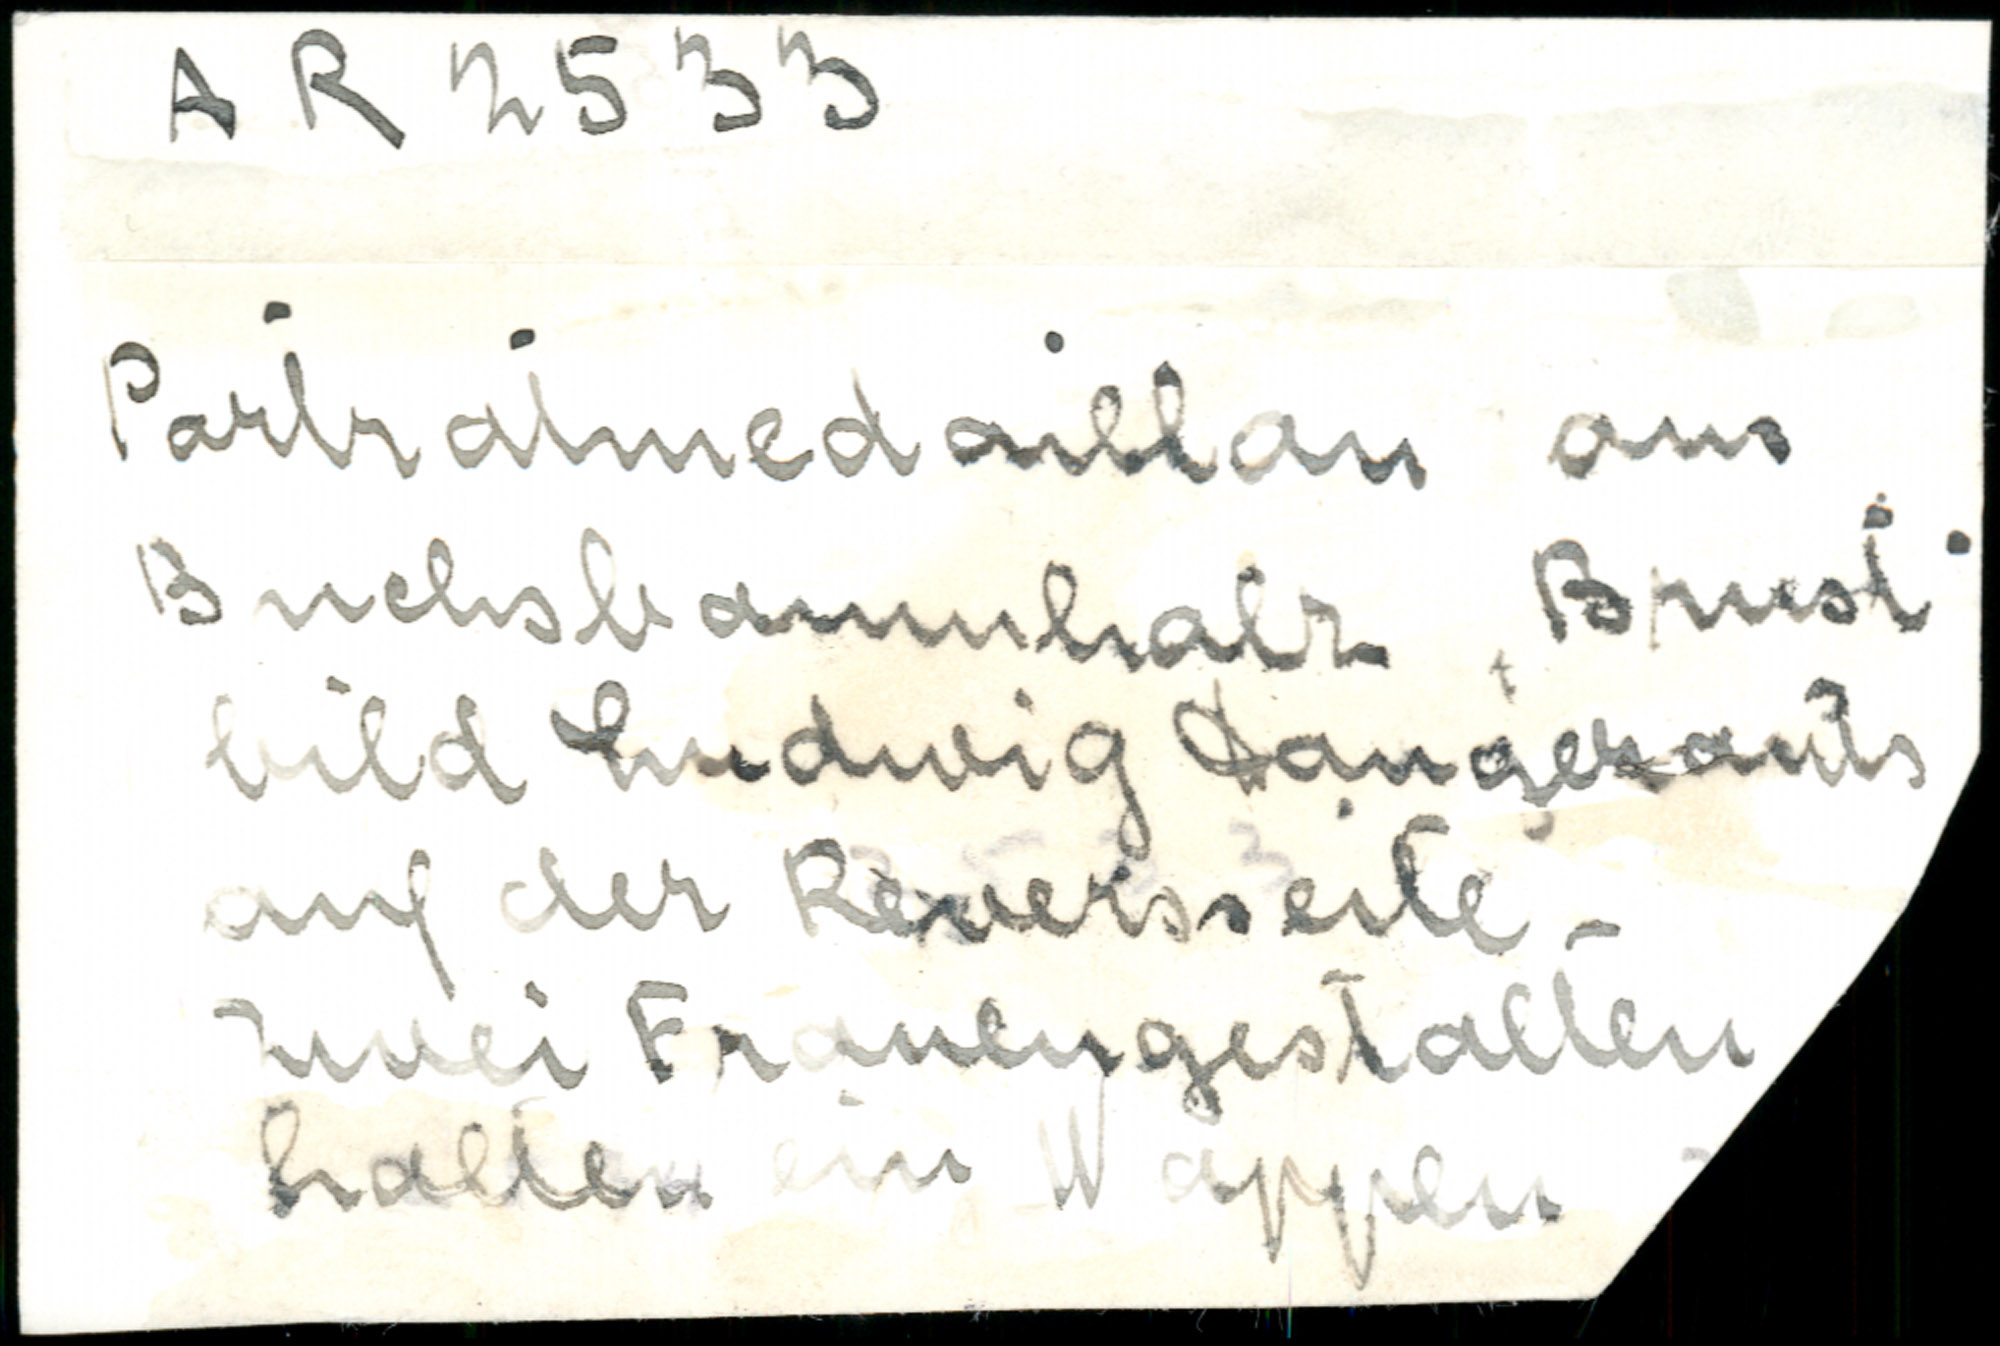 AR 2533
Porträtmedaillon aus
Buchsbaumholz, Brust-
bild Ludwig
auf der Reversseite
zwei Frauengestalten
halten ein Wappen